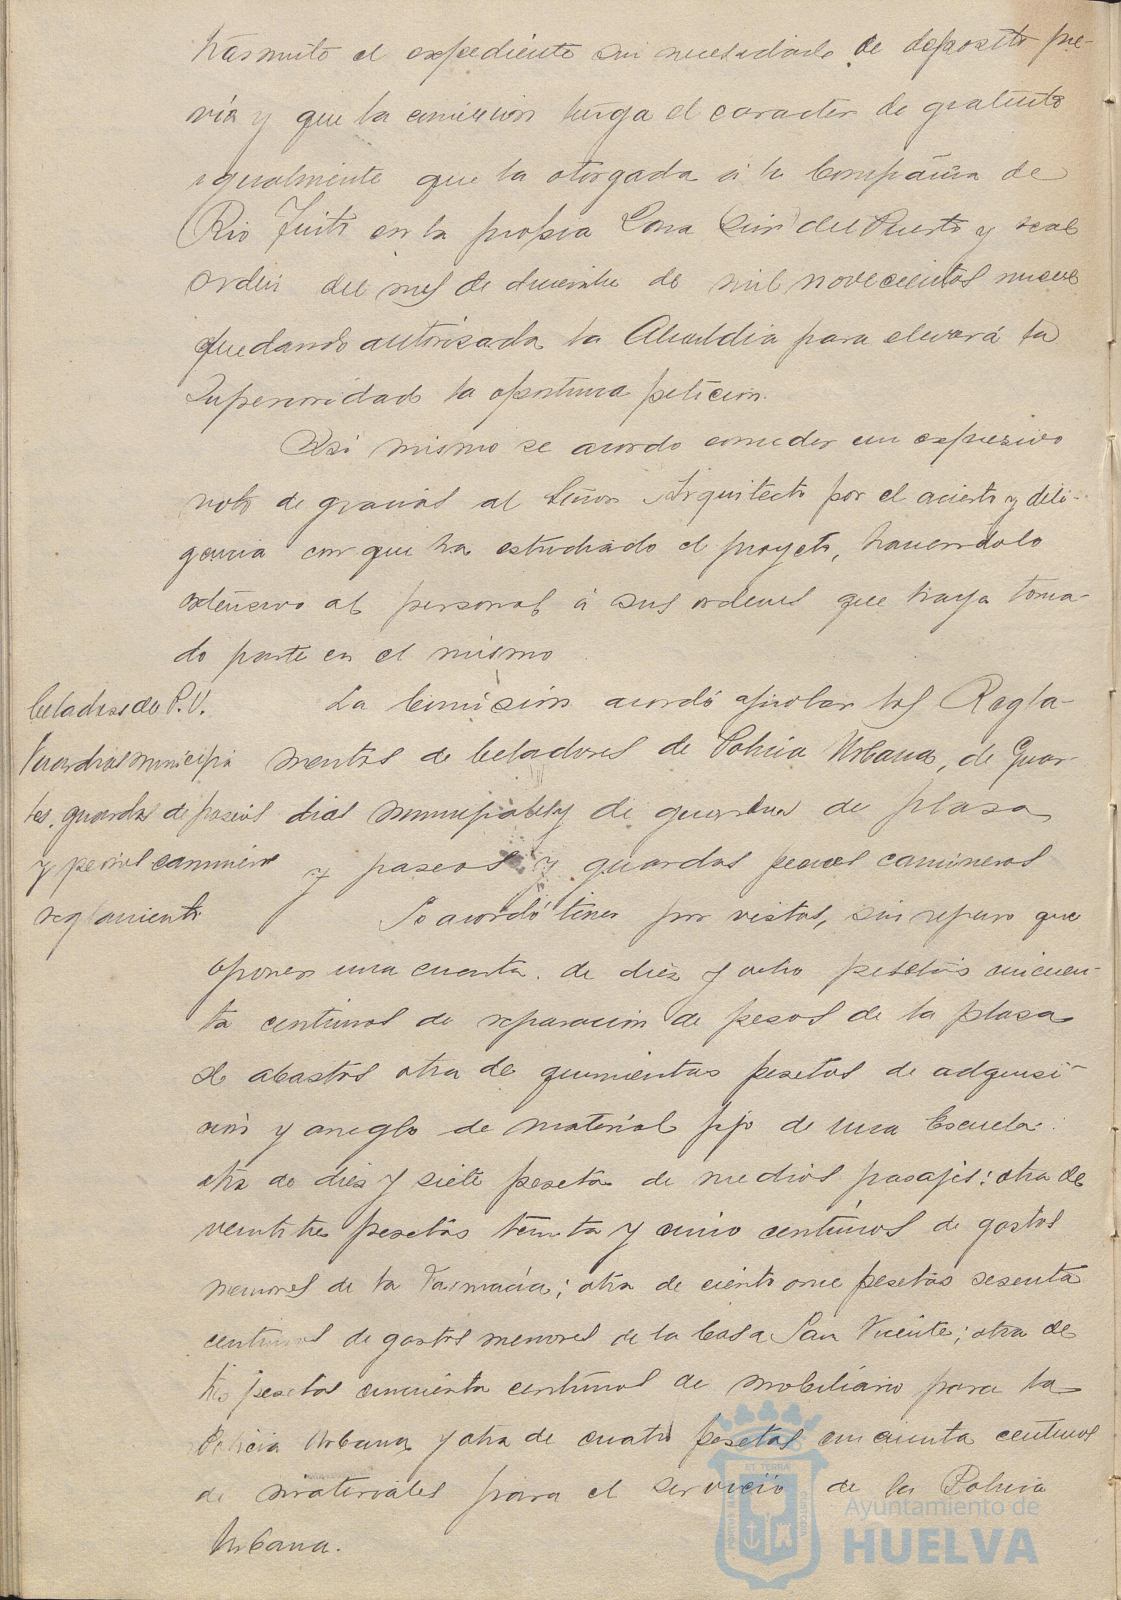 trasmita el expediente sin necesidad de deposito pre-
vio y que la concesion tenga el caracter de gratuita
igualmente que la otorgada á la Compañia de
Rio Tinto en la propia Zona Sur del Puerto y real
orden del mes de diciembre de mil novecientos nueve
quedando autorizada la Alcaldia para elevar á la
Superioridad la oportuna peticion.
Asi mismo se acordo conceder un expresivo
voto de gracias al Señor Arquitecto por el acierto y dili-
gencia con que ha estudiado el proyecto, haciendolo
extensivo al personal á sus ordenes que haya toma-
do parte en el mismo
Celadores de P. U.
Guardias municipa
les, guardas de paseos
y peones camineros
reglamento
La Comisión acordó aprobar los Regla-
mentos de Celadores de Policia Urbana, de Guar-
dias municipales y de guardas de plaza
y paseos y guardas peones camineros
Se acordó tener por vistas, sin reparo que
oponer una cuenta de diez y ocho pesetas cincuen-
ta centimos de reparacion de pesos de la plaza
de abastos otra de quinientas pesetas de adquisi-
cion y arreglo de material fijo de una Escuela:
otra de diez y siete pesetas de medios pasajes: otra de
veintitres pesetas treinta y cinco centimos de gastos
menores de la Farmacia; otra de ciento once pesetas sesenta
centimos de gastos menores de la Casa San Vicente; otra de
tres pesetas cincuenta centimos de mobiliario para la
Policia Urbana y otra de cuatro pesetas cincuenta centimos
de materiales para el servicio de la Policia
Urbana.
Ayuntamiento de
HUELVA